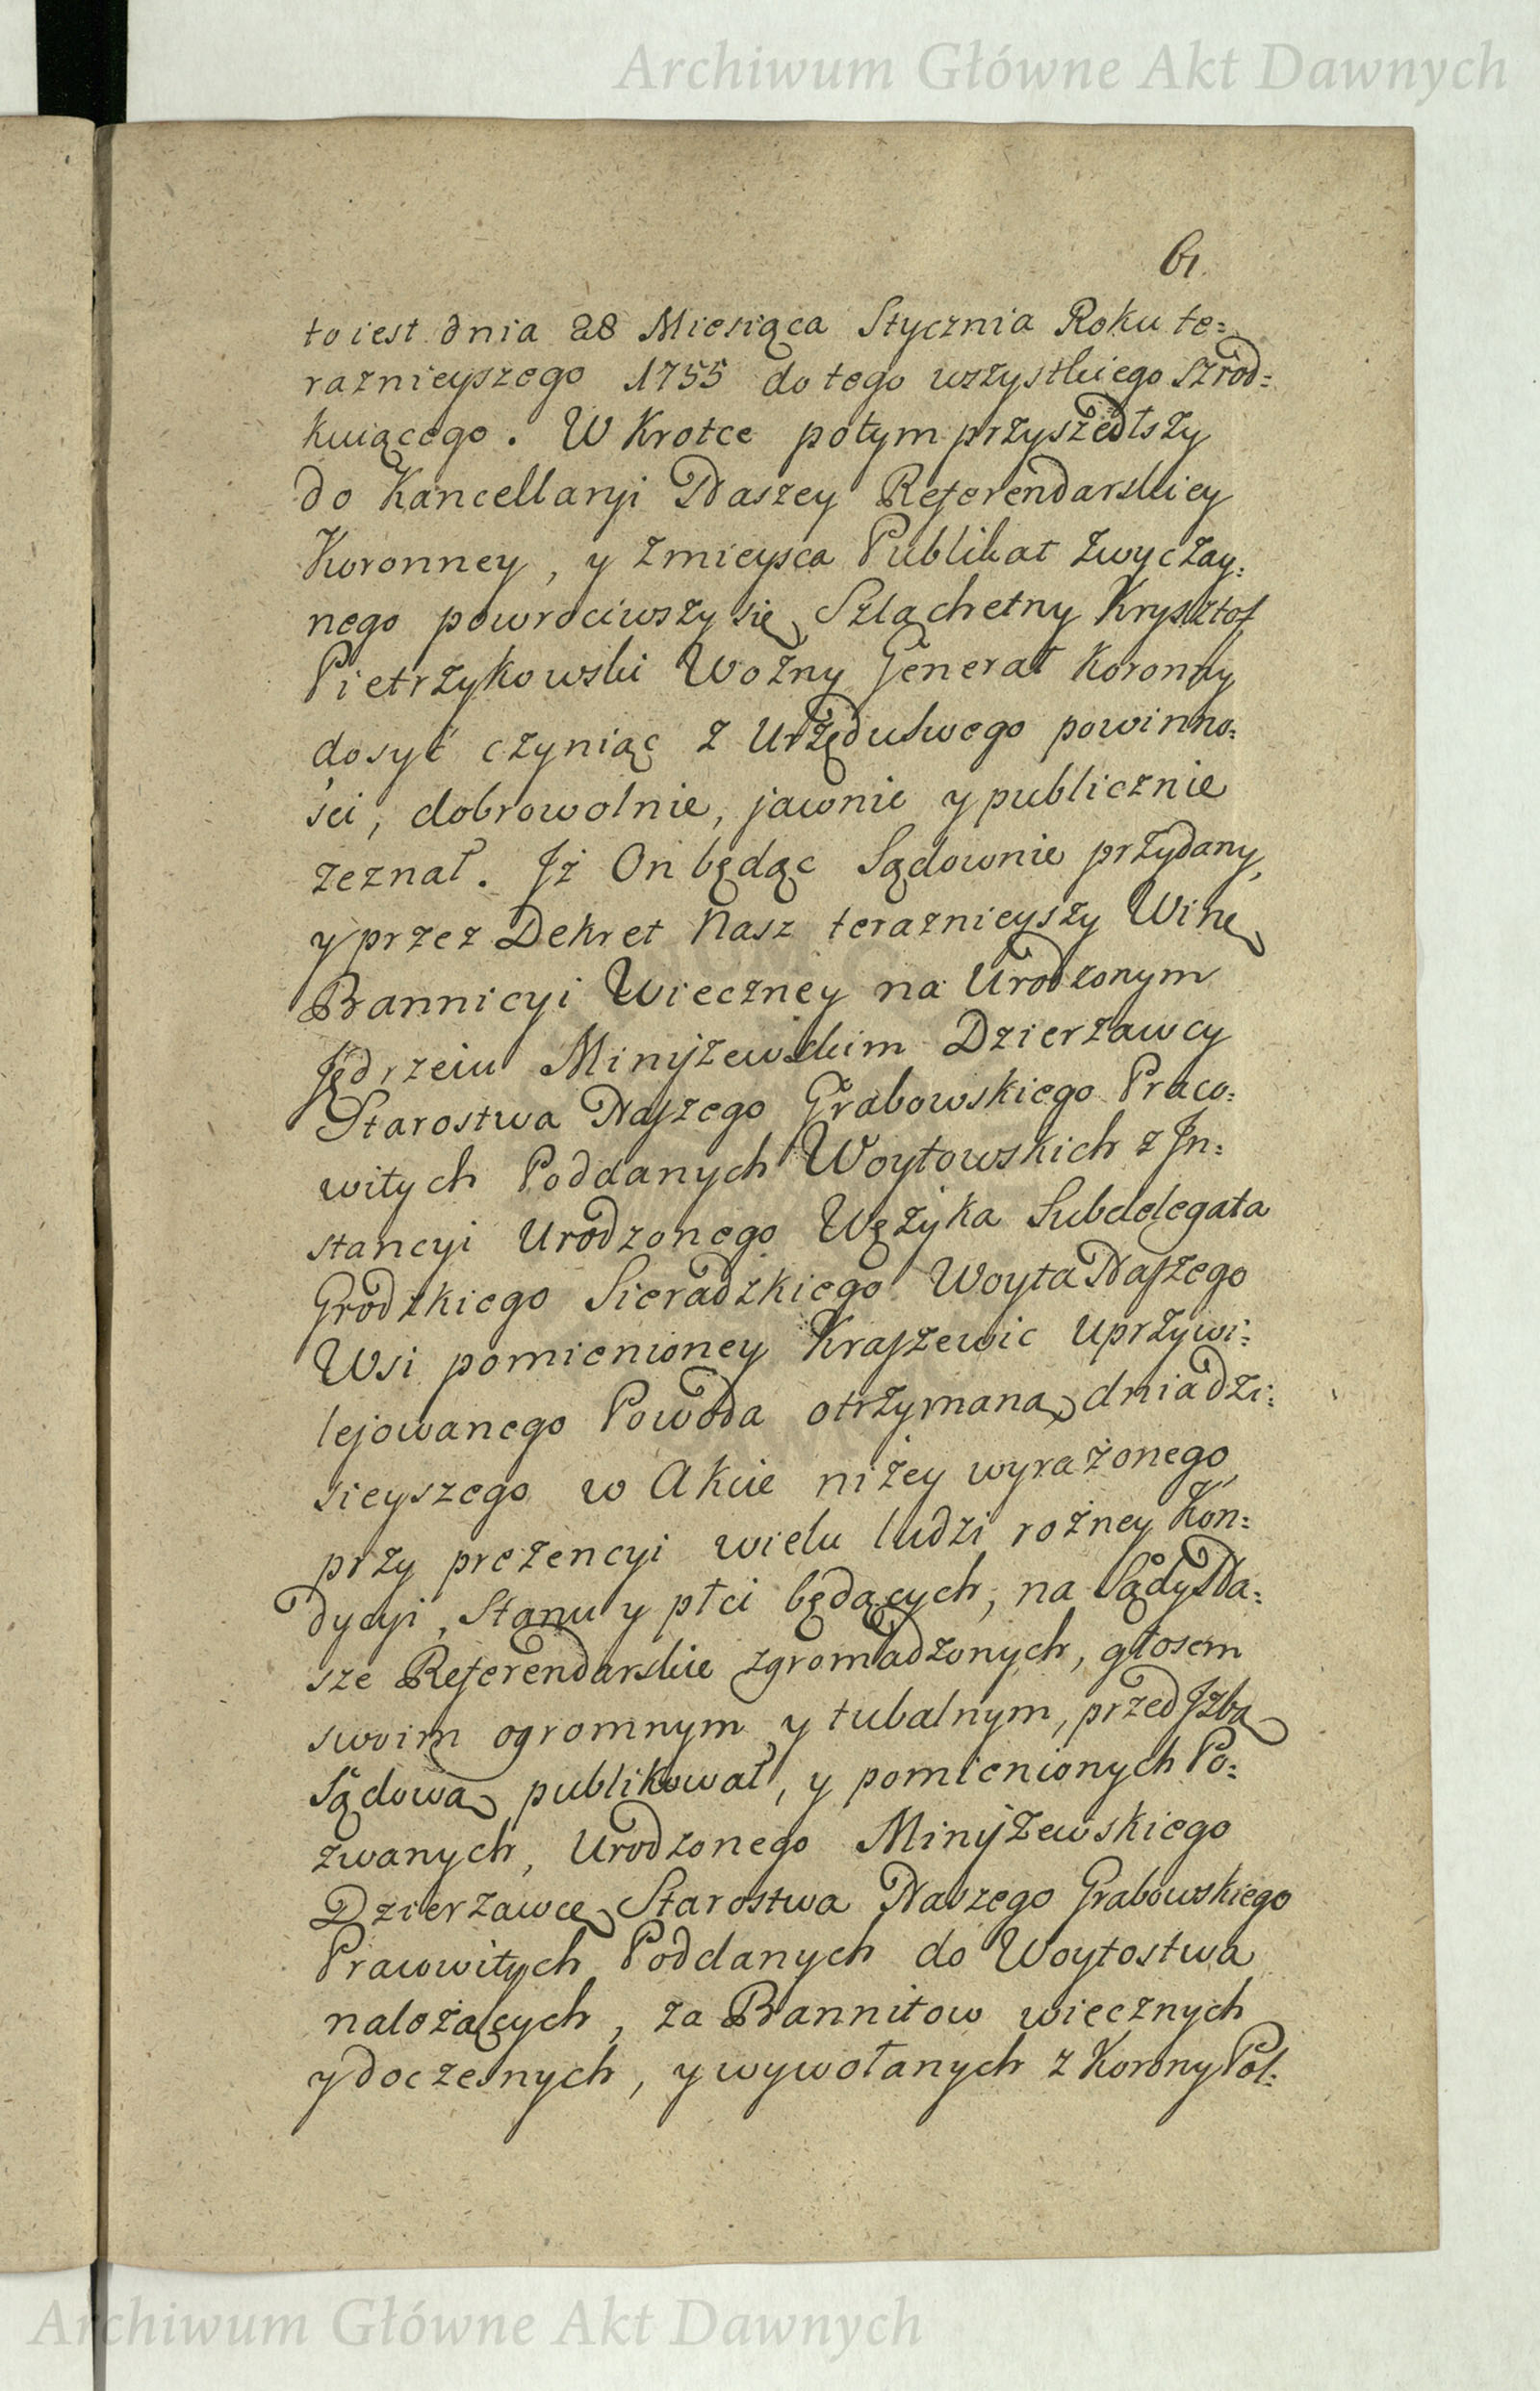 Archiwum Główne Akt Dawnych
61.
to iest dnia 28 Miesiąca Stycznia Roku te=
raznieyszego 1755 do tego wszystkiego szrod=
kuiącego. W Krotce potym przyszedłszy
do Kancellaryi Naszey Referendarskiey
Koronney, y z mieysca Publikat zwyczay=
nego powrociwszy się, Szlachetny Krysztof
Pietrzykowski Woźny Generał Koronny
dosyć czyniąc z Urzędu swego powinno=
ści, dobrowolnie, jawnie y publicznie
zeznał. Jż On będąc Sądownie przydany,
y przez Dekret Nasz teraznieyszy Winę
Bannicyi Wieczney na Urodzonym
Jędrzeiu Minyżewskim Dzierzawcy
Starostwa Naszego Grabowskiego Praco=
witych Poddanych Woytowskich z Jn=
stancyi Urodzonego Wężyka Subdelegata
Grodzkiego Sieradzkiego Woyta Naszego
Wsi pomienioney Kraszewic Uprzywi=
lejowanego Powoda otrzymaną, dnia dzi=
sieyszego w Akcie niżey wyrażonego
przy prezencyi wielu ludzi rożney Kon=
dycyi, Stanu y płci będących, na Sądy Na=
sze Referendarskie zgromadzonych, głosem
swoim ogromnym y tubalnym, przed Jzbą
Sądową publikował, y pomienionych Po=
zwanych, Urodzonego Minyżewskiego
Dzierzawcę Starostwa Naszego Grabowskiego
Prawowitych Poddanych do Woytostwa
należących, za Bannitow wiecznych
y doczesnych, y wywołanych z Korony Pol=
Archiwum Główne Akt Dawnych